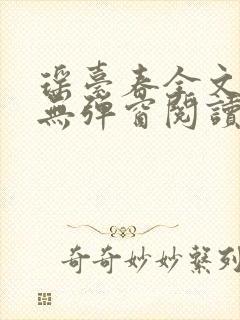 瑶臺春全文
無彈窗閱讀
奇奇妙妙繫列